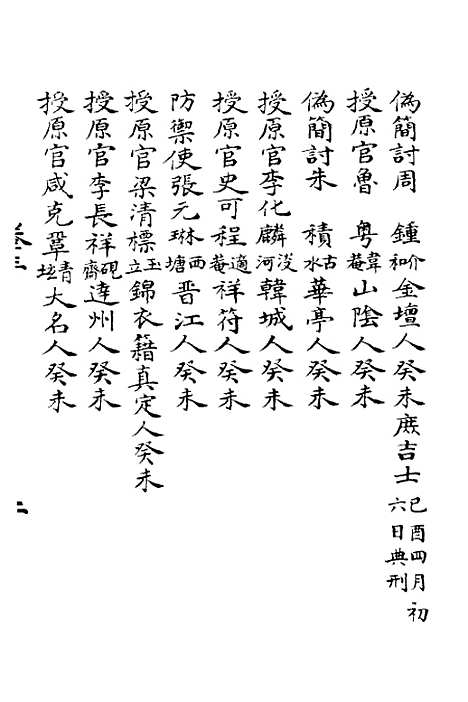 偽簡討周　鍾介和金壇人癸未庶吉士己酉四月初六日典刑
授原官魯　粤韋菴山陰人癸未
偽簡討朱　積古水華亭人癸未
授原官李化麟浚河韓城人癸未
授原官史可程適菴祥符人癸未
防禦使張元琳西塘晋江人癸未
授原官梁清標玉立錦衣籍真定人癸未
授原官李長祥硯齋達州人癸未
授原官咸克鞏青垣大名人癸未
卷三
二